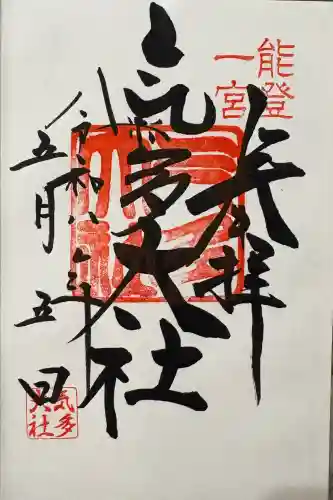 能登
一宮
奉拝
氣多大社
令和八年
五月五日
気多
大社